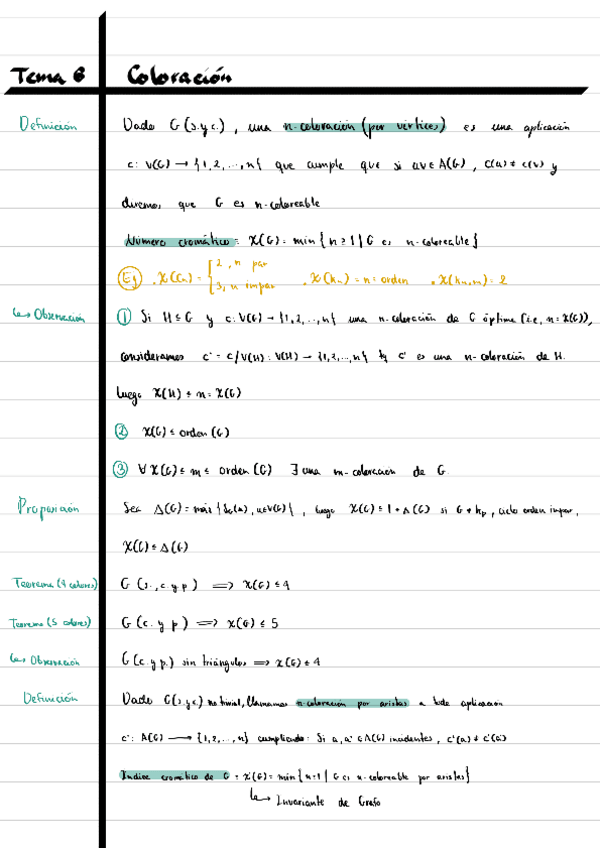 Tema 6 Coloración
Definición Dado G (s.y c.), una n-coloración (por vértices) es una aplicación
c: V(G) → {1,2,...,n} que cumple que si uv ∈ A(G), c(u) ≠ c(v) y
diremos que G es n-coloreable
Número cromático = χ(G) = min { n ≥ 1 | G es n-coloreable }
Ej . χ(Cn) = { 2, n par . χ(Kn) = n = orden . χ(Kn,m) = 2
3, n impar
↳ Observación ① Si H ≤ G y c: V(G) → {1,2,...,n} una n-coloración de G óptima (i.e, n = χ(G)),
consideramos c' = c/V(H) : V(H) → {1,2,...,n} tq c' es una n-coloración de H.
Luego χ(H) ≤ n = χ(G)
② χ(G) ≤ orden (G)
③ ∀ χ(G) ≤ m ≤ orden (G) ∃ una m-coloración de G.
Proposición Sea Δ(G) = máx { δG(u), u ∈ V(G) }, luego χ(G) ≤ 1 + Δ(G) si G ≠ Kp, ciclo orden impar,
χ(G) ≤ Δ(G)
Teorema (4 colores) G (s., c. y p.) ⟹ χ(G) ≤ 4
Teorema (5 colores) G (c. y p.) ⟹ χ(G) ≤ 5
↳ Observación G (c. y p.) sin triángulos ⟹ χ(G) ≤ 4
Definición Dado G (s. y c) no trivial, llamamos n-coloración por aristas a toda aplicación
c': A(G) ⟶ {1,2,...,n} cumpliendo: Si a, a' ∈ A(G) incidentes, c'(a) ≠ c'(a')
Índice cromático de G = χ'(G) = min { n ≥ 1 | G es n-coloreable por aristas }
↳ Invariante de Grafo